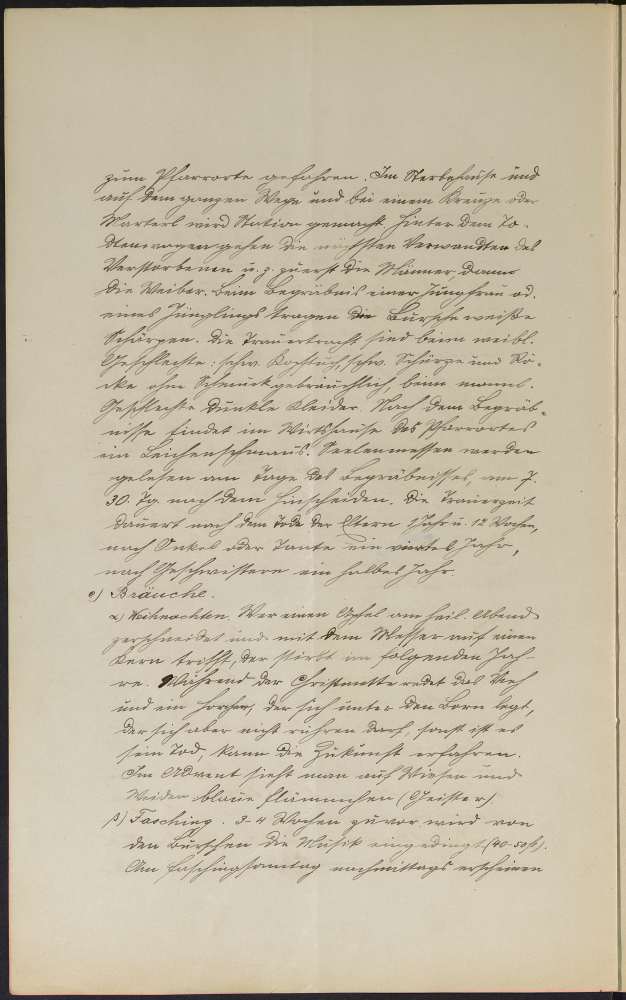 zum Pfarrorte gefahren. Im Sterbehause und
auf dem ganzen Wege und bei einem Kreuze oder
Marterl wird Station gemacht. Hinter dem To-
tenwagen gehen die nächsten Verwandten des
Verstorbenen u. z. zuerst die Männer, dann
die Weiber. Beim Begräbnis einer Jungfrau od.
eines Jünglings tragen die Bursche weiße
Schärpen. Die Trauertracht sind beim weibl.
Geschlechte: schw. Kopftuch, schw. Schürze und Rö-
cke ohne Schmuck gebräuchlich, beim männl.
Geschlechte dunkle Kleider. Nach dem Begräb-
nisse findet im Wirtshause des Pfarrortes
ein Leichenschmaus. Seelenmessen werden
gelesen am Tage des Begräbnisses, am 7.
30. Tg nach dem Hinscheiden. Die Trauerzeit
dauert nach dem Tode der Eltern 1 Jahr u. 12 Wochen,
nach Onkel oder Tante ein viertel Jahr,
nach Geschwistern ein halbes Jahr.
e) Bräuche.
α) Weihnachten. Wer einen Apfel am heil. Abend
zerschneidet und mit dem Messer auf einen
Kern trifft, der stirbt im folgenden Jah-
re. Während der Christmette redet das Vieh
und ein Horcher, der sich unter den Barn legt,
der sich aber nicht rühren darf, sonst ist es
sein Tod, kann die Zukunft erfahren.
Im Advent sieht man auf Wiesen und
Weiden blaue Flämmchen (Geister)
β) Fasching. 3-4 Wochen zuvor wird von
den Burschen die Musik eingedingt (40-50 fl).
Am Faschingsamstag nachmittags erscheinen